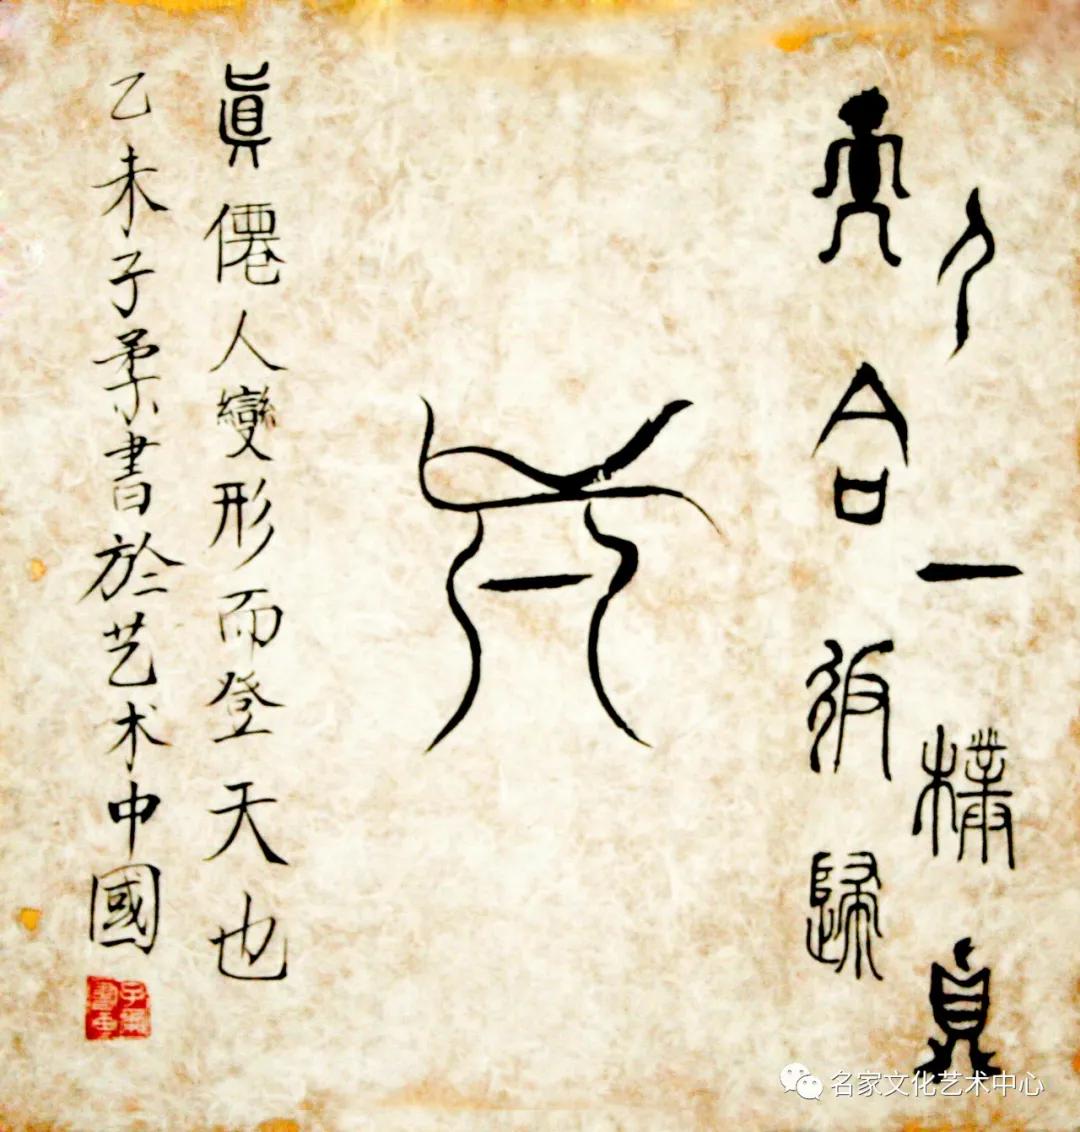 天人合一返樸歸真
眞僊人變形而登天也
乙未子柔書於艺术中國
名家文化艺术中心